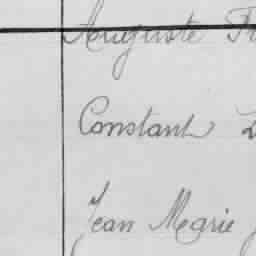 Auguste
Constant
Jean Marie